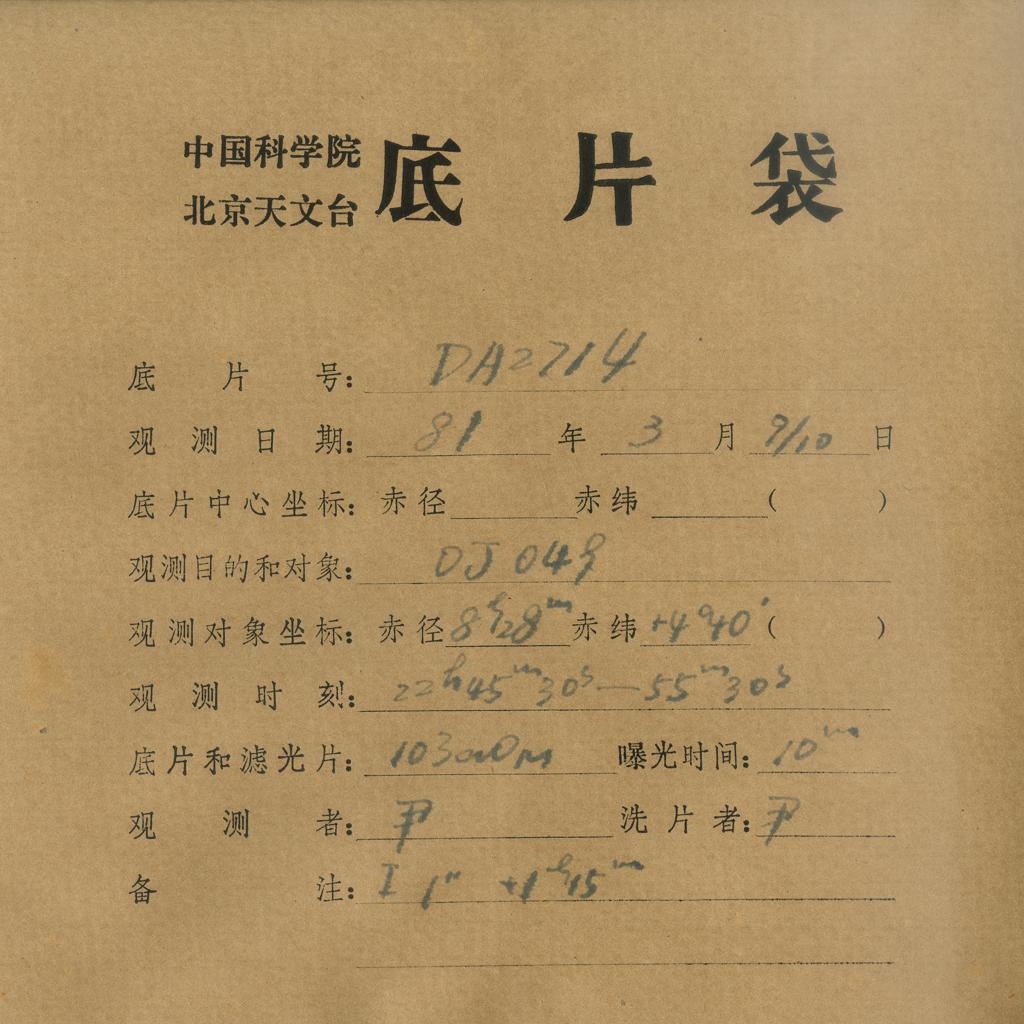 中国科学院
北京天文台
底片袋
底片号：DA2714
观测日期：81年3月9/10日
底片中心坐标：赤径 赤纬 ( )
观测目的和对象：OJ 049
观测对象坐标：赤径8h28m赤纬+4°40′( )
观测时刻：22h45m30s—55m30s
底片和滤光片：103aO 曝光时间：10m
观测者：尹 洗片者：尹
备注：I 1" +1h15m